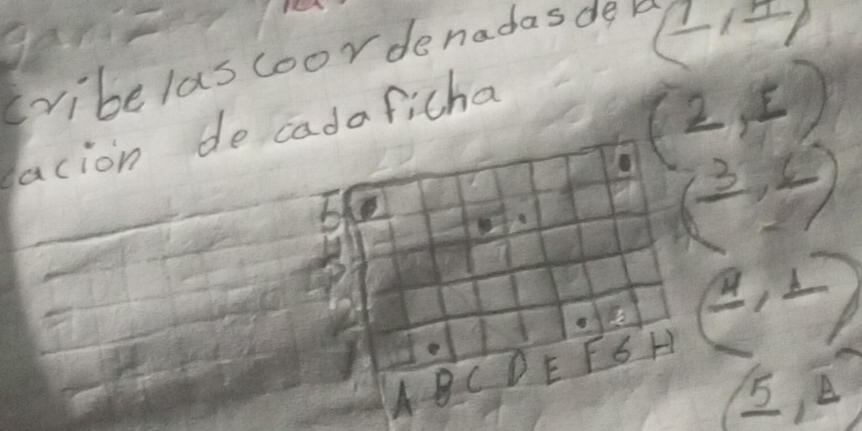 cribe las coordenadas de la
cación de cada ficha
(2, E)
(3, C)
(4, 1)
(5, A
5
4
3
2
1
A B C D E F G H